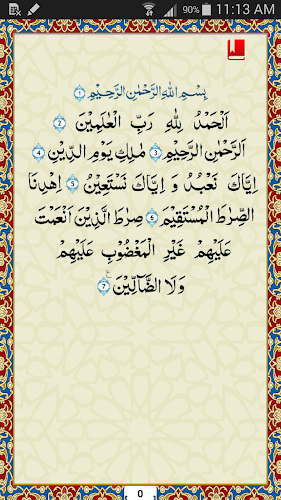 90% 11:13 AM
بِسْمِ اللّٰهِ الرَّحْمٰنِ الرَّحِيْمِ ﴿1﴾
اَلْحَمْدُ لِلّٰهِ رَبِّ الْعٰلَمِيْنَ ﴿2﴾
الرَّحْمٰنِ الرَّحِيْمِ ﴿3﴾ مٰلِكِ يَوْمِ الدِّيْنِ ﴿4﴾
اِيَّاكَ نَعْبُدُ وَ اِيَّاكَ نَسْتَعِيْنُ ﴿5﴾ اِهْدِنَا
الصِّرَاطَ الْمُسْتَقِيْمَ ﴿6﴾ صِرَاطَ الَّذِيْنَ اَنْعَمْتَ
عَلَيْهِمْ غَيْرِ الْمَغْضُوْبِ عَلَيْهِمْ
وَلَا الضَّآلِّيْنَ ﴿7﴾
0